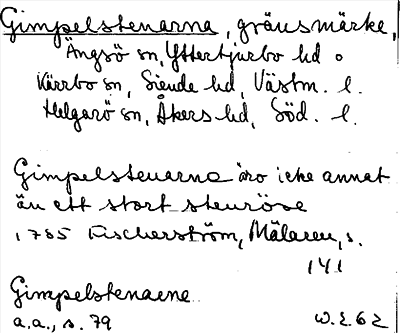 Gimpelstenarna, gränsmärke,
Ängsö sn, Yttertjurbo hd o
Kärrbo sn, Siende hd, Västm. l.
Helgarö sn, Åkers hd, Söd. l.
Gimpelstenarna äro icke annat
än ett stort stenröse
1785 Fischerström, Mälaren, s.
141
Gimpelstenarne
a.a., s. 79